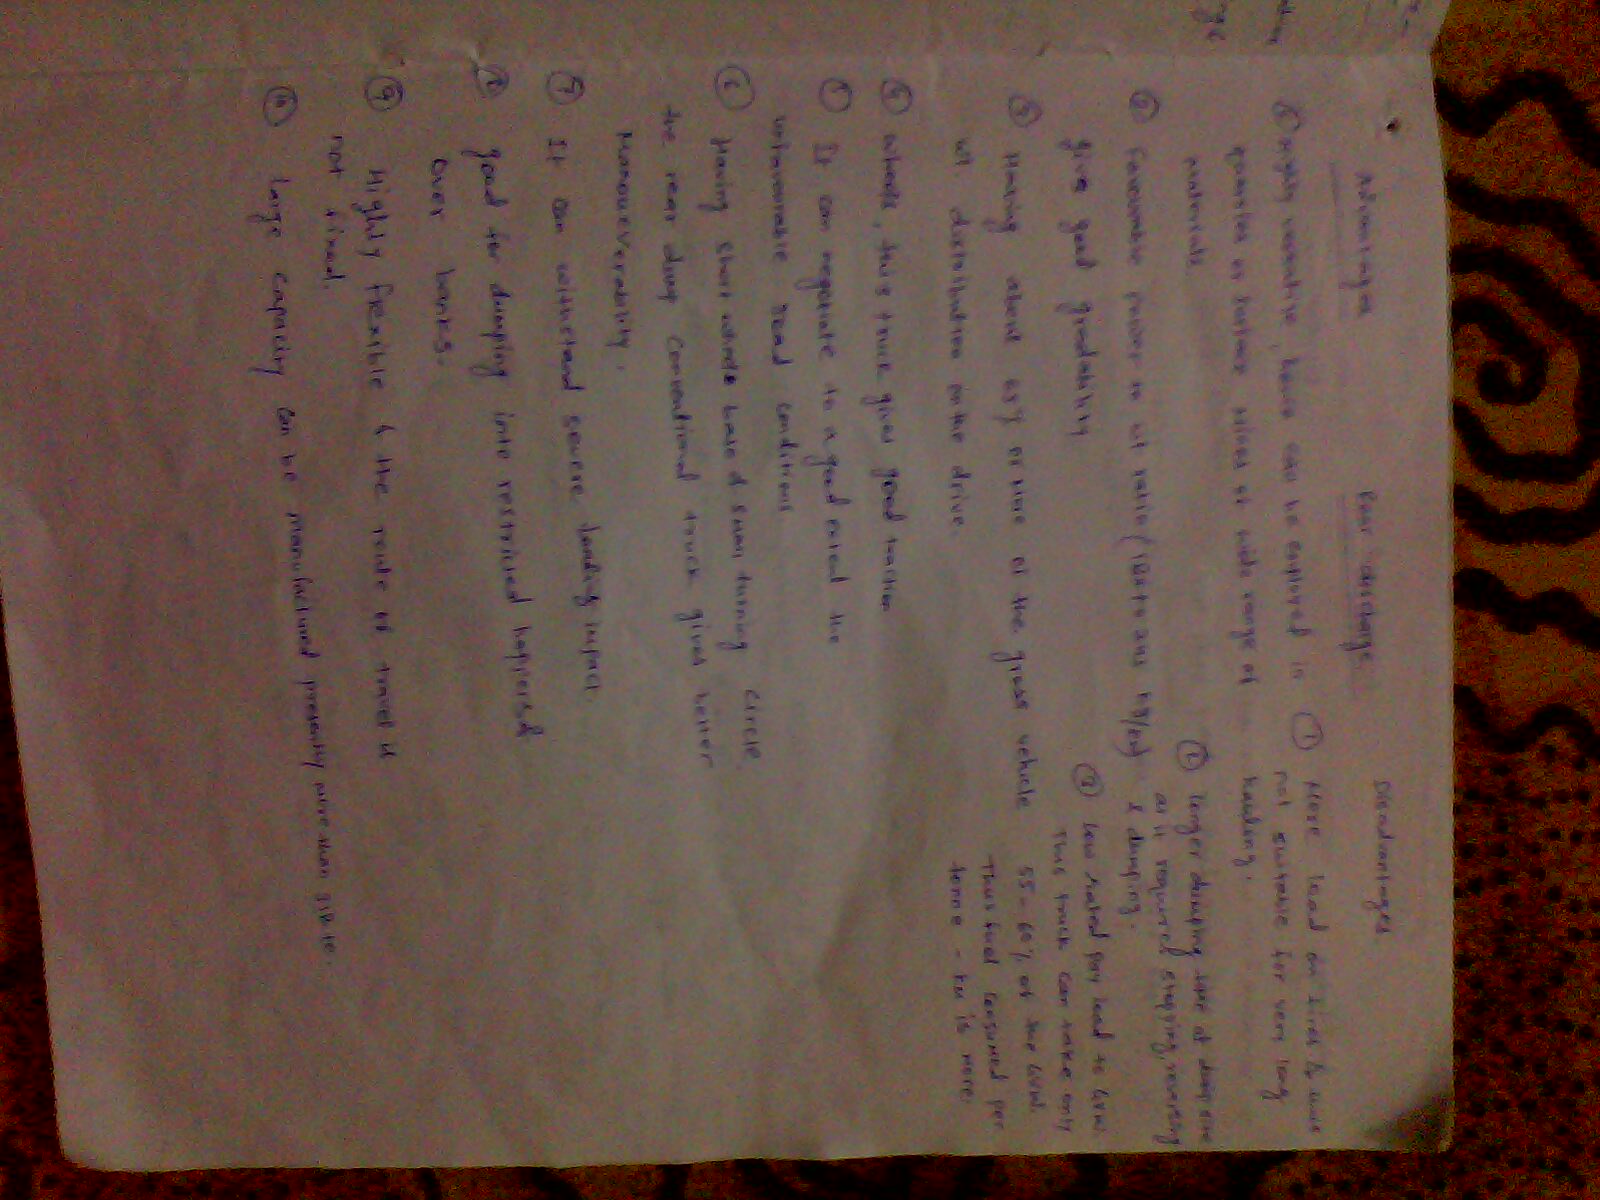 Advantages
Rear discharge
① Highly versatile, hence can be employed in
quarries or surface mines of wide range of
materials
② favourable power to wt ratio
give good gradability
③ Having about 65% or more of the gross vehicle
wt distribution on the drive
④ wheels, this truck gives good traction
⑤ It can negotiate to a good extent the
unfavourable road conditions
⑥ Having short wheel base & small turning circle
the rear dump conventional truck gives better
Manouverability.
⑦ It can withstand severe loading impact
⑧ good for dumping into restricted hoppers &
over banks.
⑨ Highly flexible & the route of travel is
not fixed.
⑩ large capacity can be manufactured presently more than
Disadvantages
① More load on tires & thus
not suitable for very long
hauling.
② longer dumping time at dump site
as it required stopping, reversing
& dumping.
③ low rated pay load to GVW.
This truck can take only
55-60% of the GVW.
Thus fuel consumed per
tonne - km is more.